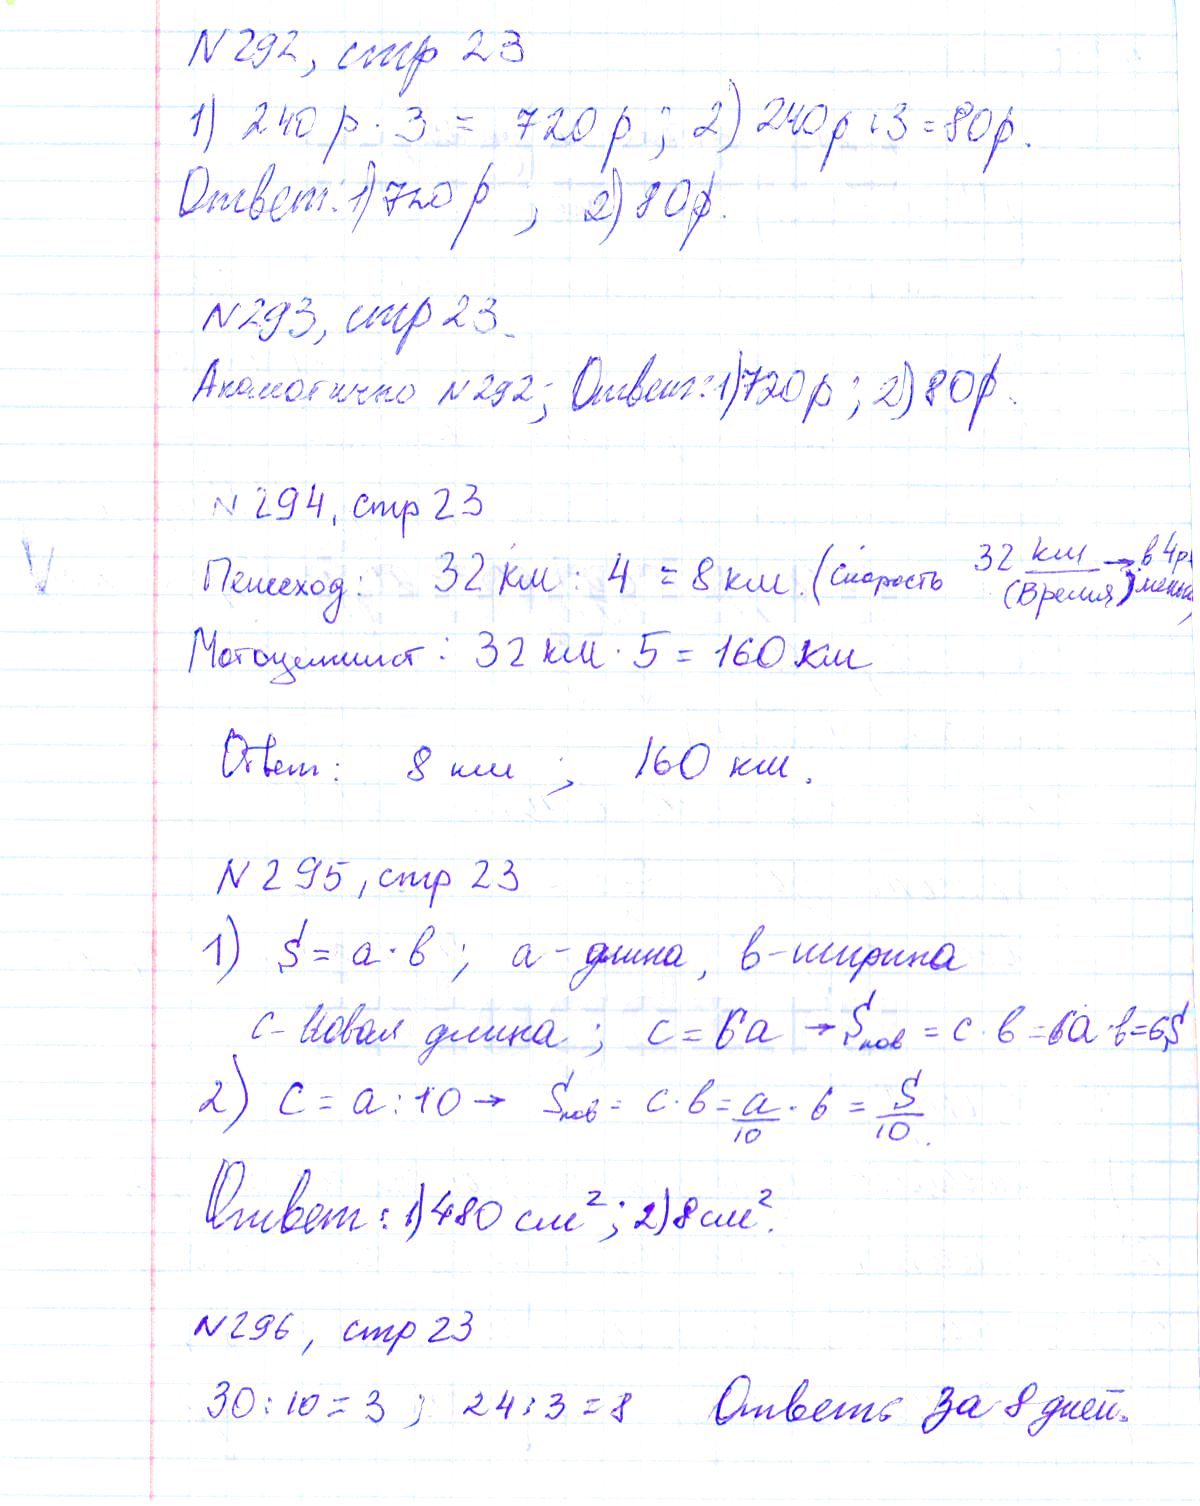 N292, стр 23
1) 240 р · 3 = 720 р ; 2) 240р : 3 = 80р.
Ответ: 1) 720 р ; 2) 80р.
N293, стр 23.
Аналогично N292; Ответ: 1) 720р ; 2) 80р.
N 294, стр 23
Пешеход: 32 км : 4 = 8 км. (скорость 32 км/(Время) → в 4 р. меньше)
Мотоциклист: 32 км · 5 = 160 км
Ответ: 8 км ; 160 км.
N 295, стр 23
1) S = a · в ; a - длина, в - ширина
c - Новая длина ; c = 6a → Sнов = c · в = 6a · в = 6S
2) C = a : 10 → Sнов = c · в = a/10 · в = S/10.
Ответ: 1) 480 см²; 2) 8 см².
N296, стр 23
30 : 10 = 3 ; 24 : 3 = 8 Ответ: За 8 дней.